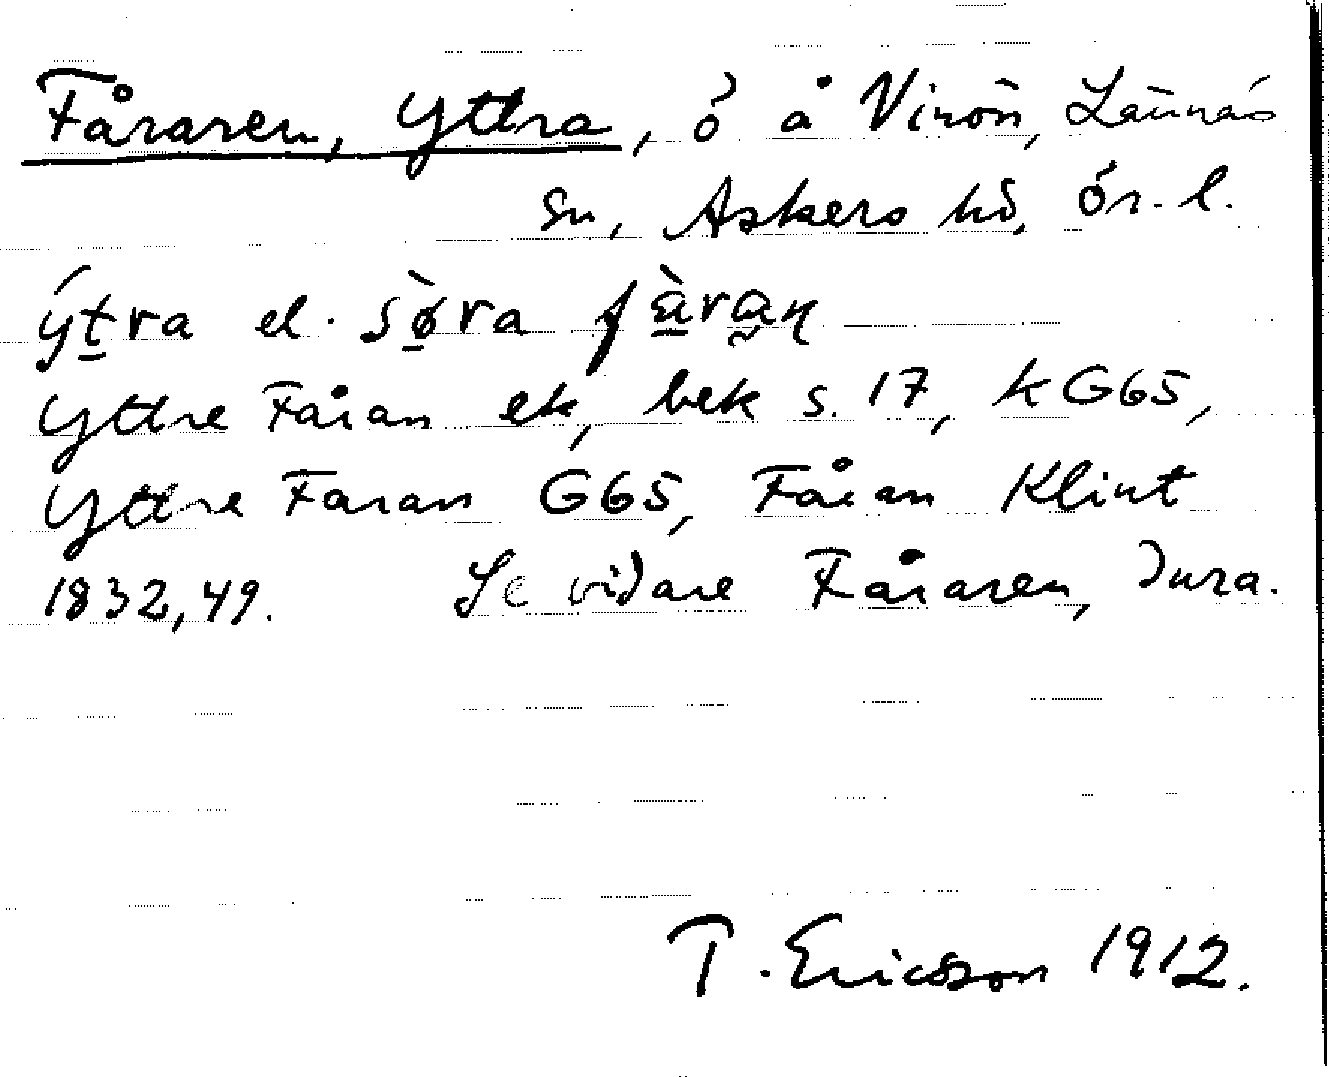 Fåraren, Yttra, ö å Vinön, Lännäs
sn, Askers hd, Ör. l.
ýt̲ra el. sø̲̀ra fà̲ran
Yttre Fåran ek, bek s. 17, k G65,
Yttre Faran G65, Fåran Klint
1832, 49. Se vidare Fåraren, Inra.
T. Ericsson 1912.